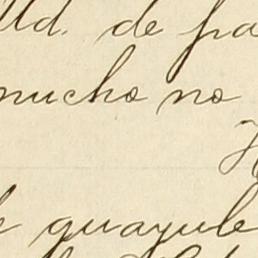 Ud. de pa
mucho no
H
de guayule